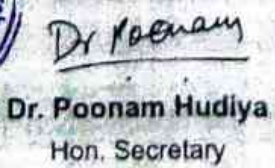 Dr Poonam
Dr. Poonam Hudiya
Hon. Secretary